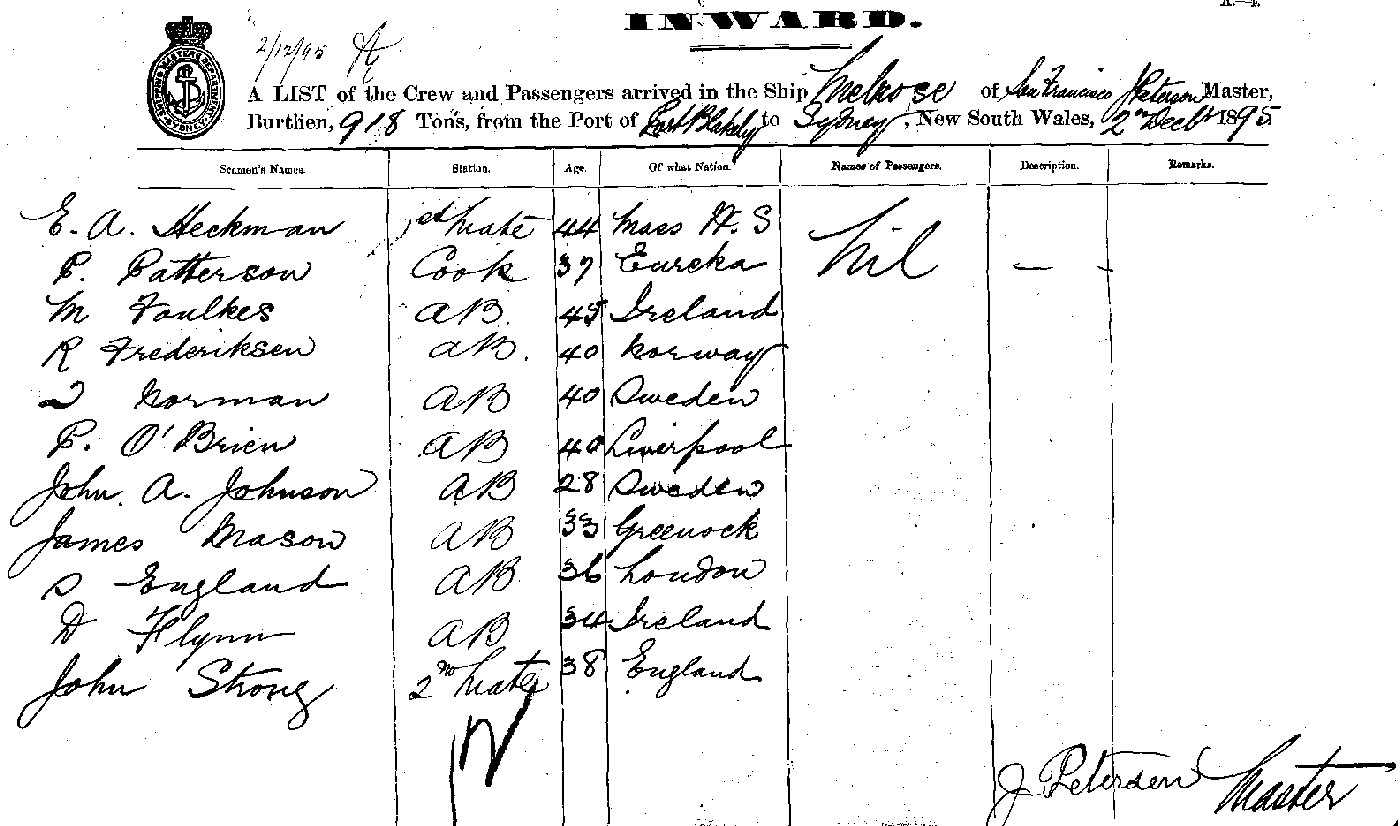 INWARD.
2/12/95
A LIST of the Crew and Passengers arrived in the Ship Melrose of San Francisco J Petersen Master,
Burthen, 918 Tons, from the Port of Port Blakely to Sydney, New South Wales, 2nd Decbr 1895
Seamen's Names. Station. Age. Of what Nation. Names of Passengers. Description. Remarks.
E. A. Heckman 1st Mate 44 Mass U. S Nil — -
P. Patterson Cook 37 Eureka
M Faulkes AB. 45 Ireland
R Frederiksen AB. 40 Norway
Norman AB 40 Sweden
P. O'Brien AB 40 Liverpool
John. A. Johnson AB 28 Sweden
James Mason AB 33 Greenock
S England AB 36 London
D Flynn AB 34 Ireland
John Strong 2nd Mate 38 England
J. Petersen Master